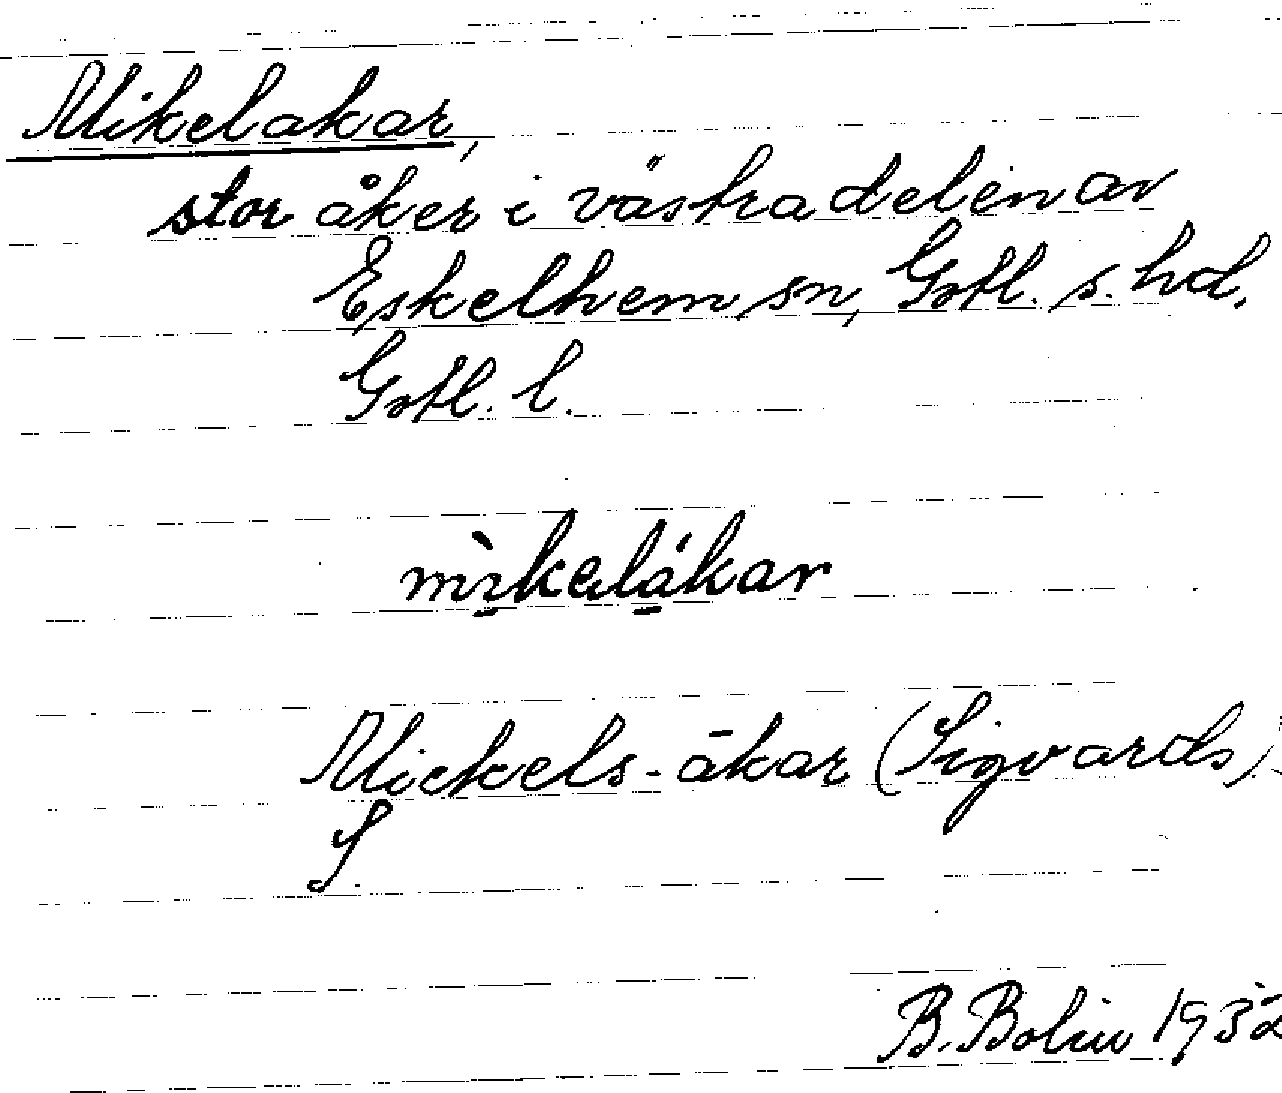 Mikelakar,
stor åker i västra delen av
Eskelhem sn, Gotl. s. hd,
Gotl. l.
mìkelákar
Mickels-ākar (Sigvards)
S.
B. Bolin 1932